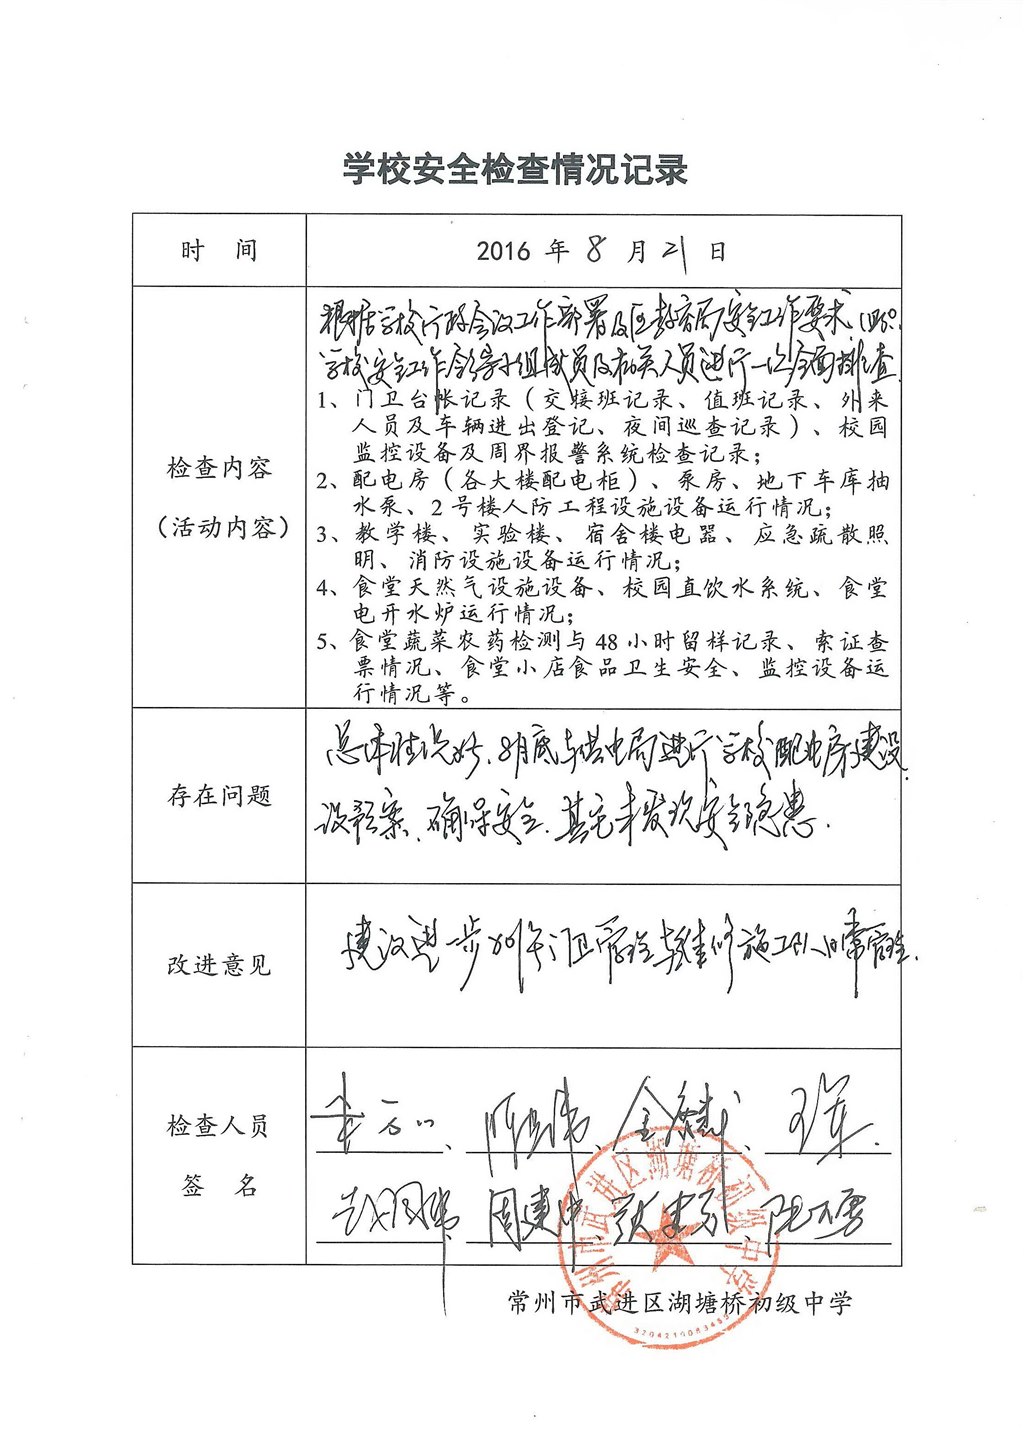 学校安全检查情况记录
时 间
2016 年 8 月 21 日
检查内容
（活动内容）
根据学校行政会议工作部署及区教育局安全工作要求，
学校安全工作领导小组成员及相关人员进行一次全面排查
1、门卫台帐记录（交接班记录、值班记录、外来
人员及车辆进出登记、夜间巡查记录）、校园
监控设备及周界报警系统检查记录；
2、配电房（各大楼配电柜）、泵房、地下车库抽
水泵、2 号楼人防工程设施设备运行情况；
3、教学楼、实验楼、宿舍楼电器、应急疏散照
明、消防设施设备运行情况；
4、食堂天然气设施设备、校园直饮水系统、食堂
电开水炉运行情况；
5、食堂蔬菜农药检测与 48 小时留样记录、索证查
票情况、食堂小店食品卫生安全、监控设备运
行情况等。
存在问题
总体情况好，8月底与供电局进行学校配电房建设，
设预案，确保安全，其它未发现安全隐患.
改进意见
建议进一步加强门卫管理与维修施工队日常管理.
检查人员
签 名
王军.
周建中
常州市武进区湖塘桥初级中学
常州市武进区湖塘桥初级中学